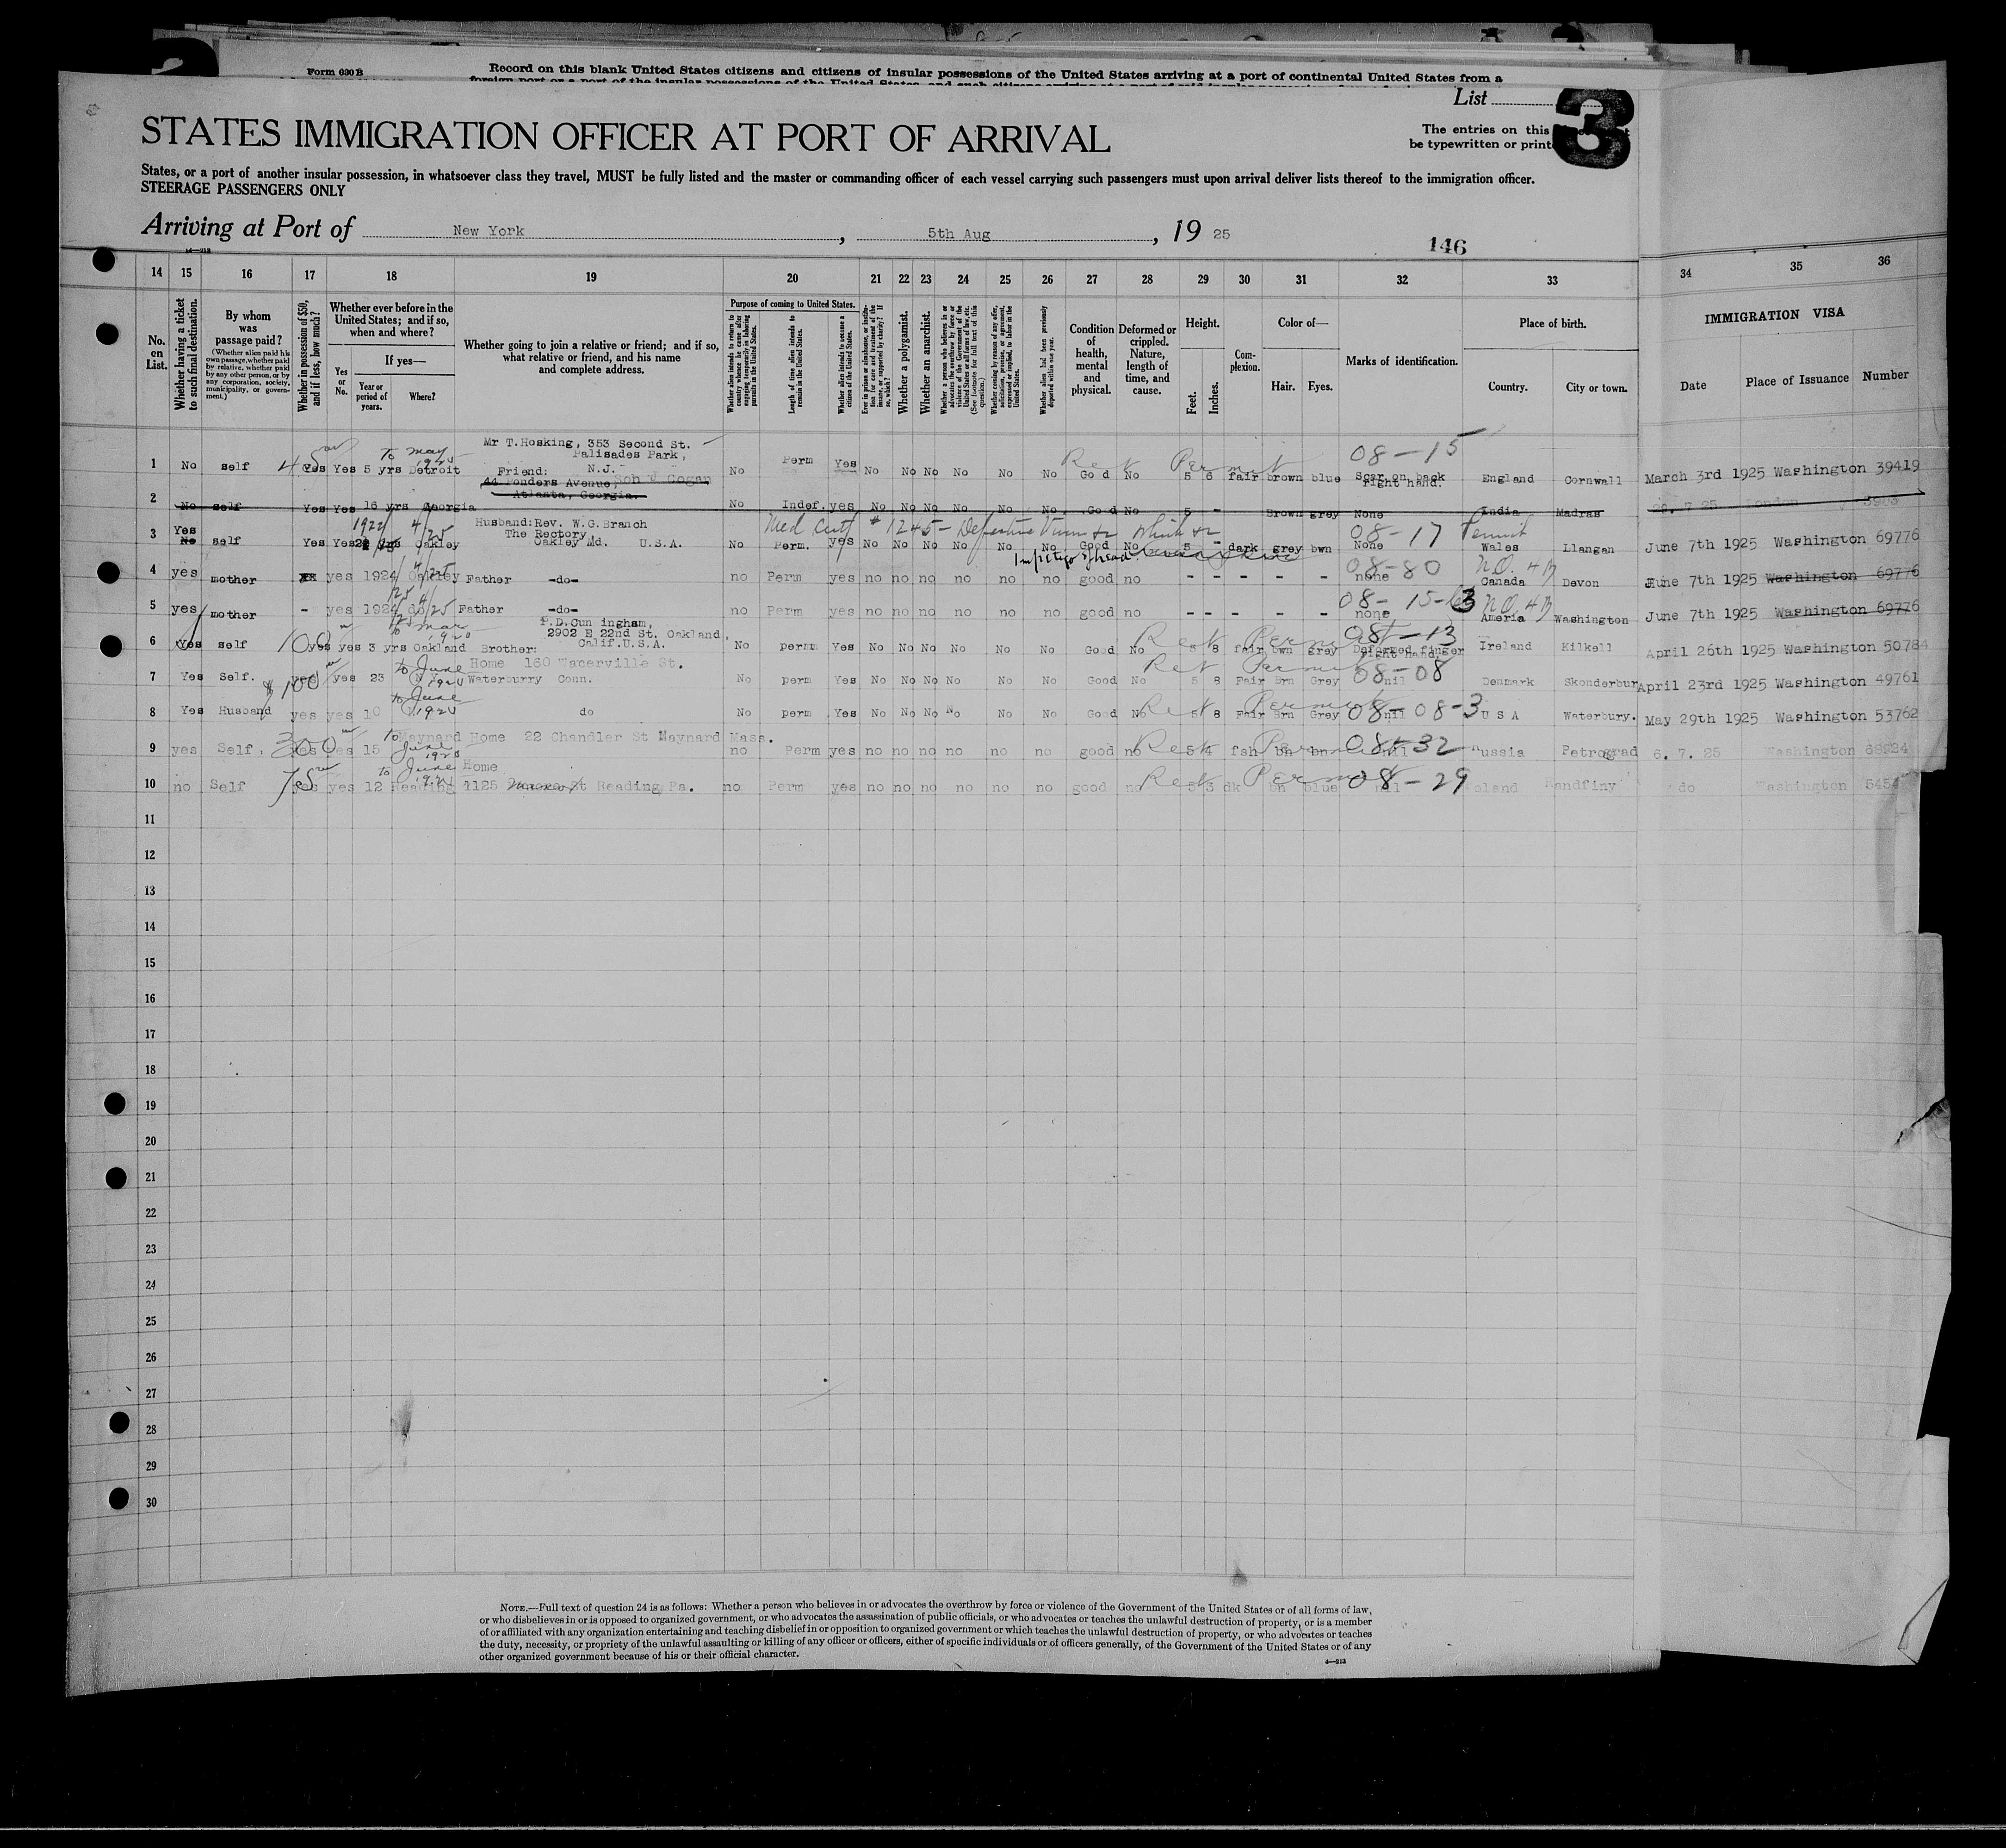 Form 630 B
Record on this blank United States citizens and citizens of insular possessions of the United States arriving at a port of continental United States from a
List
3
STATES IMMIGRATION OFFICER AT PORT OF ARRIVAL
The entries on this
be typewritten or print
States, or a port of another insular possession, in whatsoever class they travel, MUST be fully listed and the master or commanding officer of each vessel carrying such passengers must upon arrival deliver lists thereof to the immigration officer.
STEERAGE PASSENGERS ONLY
Arriving at Port of New York, 5th Aug, 19 25
146
14 15 16 17 18 19 20 21 22 23 24 25 26 27 28 29 30 31 32 33 34 35 36
No. on List.
Whether having a ticket to such final destination.
By whom was passage paid?
(Whether alien paid his own passage, whether paid by relative, whether paid by any other person, or by any corporation, society, municipality, or government.)
Whether in possession of $50, and if less, how much?
Whether ever before in the United States; and if so, when and where?
Yes or No.
If yes—
Year or period of years.
Where?
Whether going to join a relative or friend; and if so, what relative or friend, and his name and complete address.
Purpose of coming to United States.
Whether alien intends to return to country whence he came after engaging temporarily in laboring pursuits in the United States.
Length of time alien intends to remain in the United States.
Whether alien intends to become a citizen of the United States.
Whether a polygamist.
Whether an anarchist.
Condition of health, mental and physical.
Deformed or crippled. Nature, length of time, and cause.
Height.
Feet.
Inches.
Complexion.
Color of—
Hair.
Eyes.
Marks of identification.
Place of birth.
Country.
City or town.
IMMIGRATION VISA
Date
Place of Issuance
Number
Mr T. Hosking, 353 Second St.
Palisades Park,
N.J.
1 No self 45 Yes Yes 5 yrs Detroit to May 1925 No Perm Yes No No No No No No Good No 5 6 fair brown blue Scar on back right hand. 08-15 England Cornwall March 3rd 1925 Washington 39419
Ret Permit
Friend:
44 Ponders Avenue,
Atlanta, Georgia.
2 No self Yes Yes 16 yrs Georgia No Indef. yes No No No No No No Good No 5 - Brown grey None India Madras London
Med Cert # 1245-
Husband: Rev. W.G. Branch
The Rectory
Oakley Md. U.S.A.
3 Yes No self Yes Yes Oakley No Perm. yes No No No No No No Good No 5 - dark grey bwn None 08-17 Permit Wales Llangan June 7th 1925 Washington 69776
Impetigo of head
4 yes mother yes 1924 Oakley Father -do- no Perm yes no no no no no no good no - - - - - none 08-80 Canada Devon June 7th 1925 Washington 69776
5 yes mother - yes 1924 do Father -do- no Perm yes no no no no no no good no - - - - - none 08-15-63 Ameria Washington June 7th 1925 Washington 69776
2902 E 22nd St. Oakland,
Calif. U.S.A.
6 Yes self 100 yes yes 3 yrs Oakland Brother: No perm Yes No No No No No No Good No 5 8 fair bwn grey Deformed finger right hand. 08-13 Ireland Kilkell April 26th 1925 Washington 50784
Ret Permit
7 Yes Self. $100 yes yes 23 N.Y. to June 1925 Home 160 Wacerville St.
Waterburry Conn. No perm Yes No No No No No No Good No 5 8 Fair Brn Grey nil 08-08 Denmark Skonderbur April 23rd 1925 Washington 49761
Ret Permit
8 Yes Husband yes yes 10 to June do No perm Yes No No No No No No Good No 5 8 Fair Brn Grey nil 08-08-3 U S A Waterbury. May 29th 1925 Washington 53762
Ret Permit
9 yes Self. 300 yes yes 15 Maynard to June 1925 Home 22 Chandler St Maynard Mass. no Perm yes no no no no no no good no 5 4 fsh bn bn nil 08-32 Russia Petrograd 6. 7. 25 Washington 68924
Ret Permit
Home
10 no Self 75 yes yes 12 Reading to June 1125 St Reading Pa. no Perm yes no no no no no no good no 5 3 dk bn blue nil 08-29 Poland Randfiny do Washington
Ret Permit
11
12
13
14
15
16
17
18
19
20
21
22
23
24
25
26
27
28
29
30
NOTE.—Full text of question 24 is as follows: Whether a person who believes in or advocates the overthrow by force or violence of the Government of the United States or of all forms of law,
or who disbelieves in or is opposed to organized government, or who advocates the assassination of public officials, or who advocates or teaches the unlawful destruction of property, or is a member
of or affiliated with any organization entertaining and teaching disbelief in or opposition to organized government or which teaches the unlawful destruction of property, or who advocates or teaches
the duty, necessity, or propriety of the unlawful assaulting or killing of any officer or officers, either of specific individuals or of officers generally, of the Government of the United States or of any
other organized government because of his or their official character.